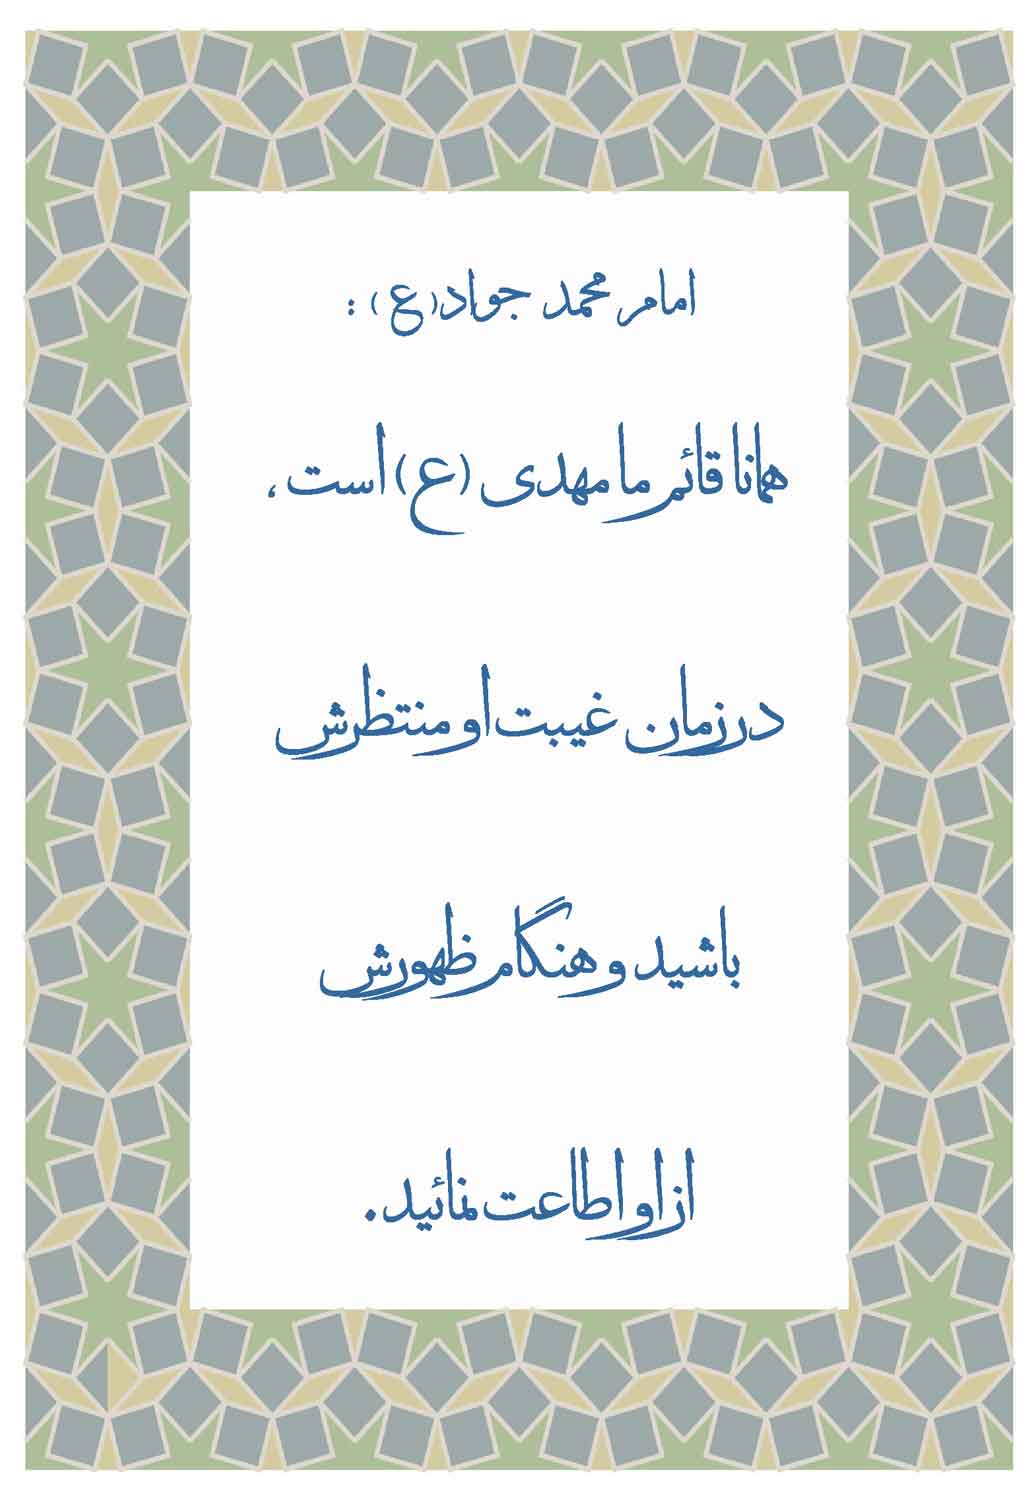 امام محمد جواد(ع) :
همانا قائم ما مهدی (ع) است ،
در زمان غیبت او منتظرش
باشید و هنگام ظهورش
از او اطاعت نمائید .